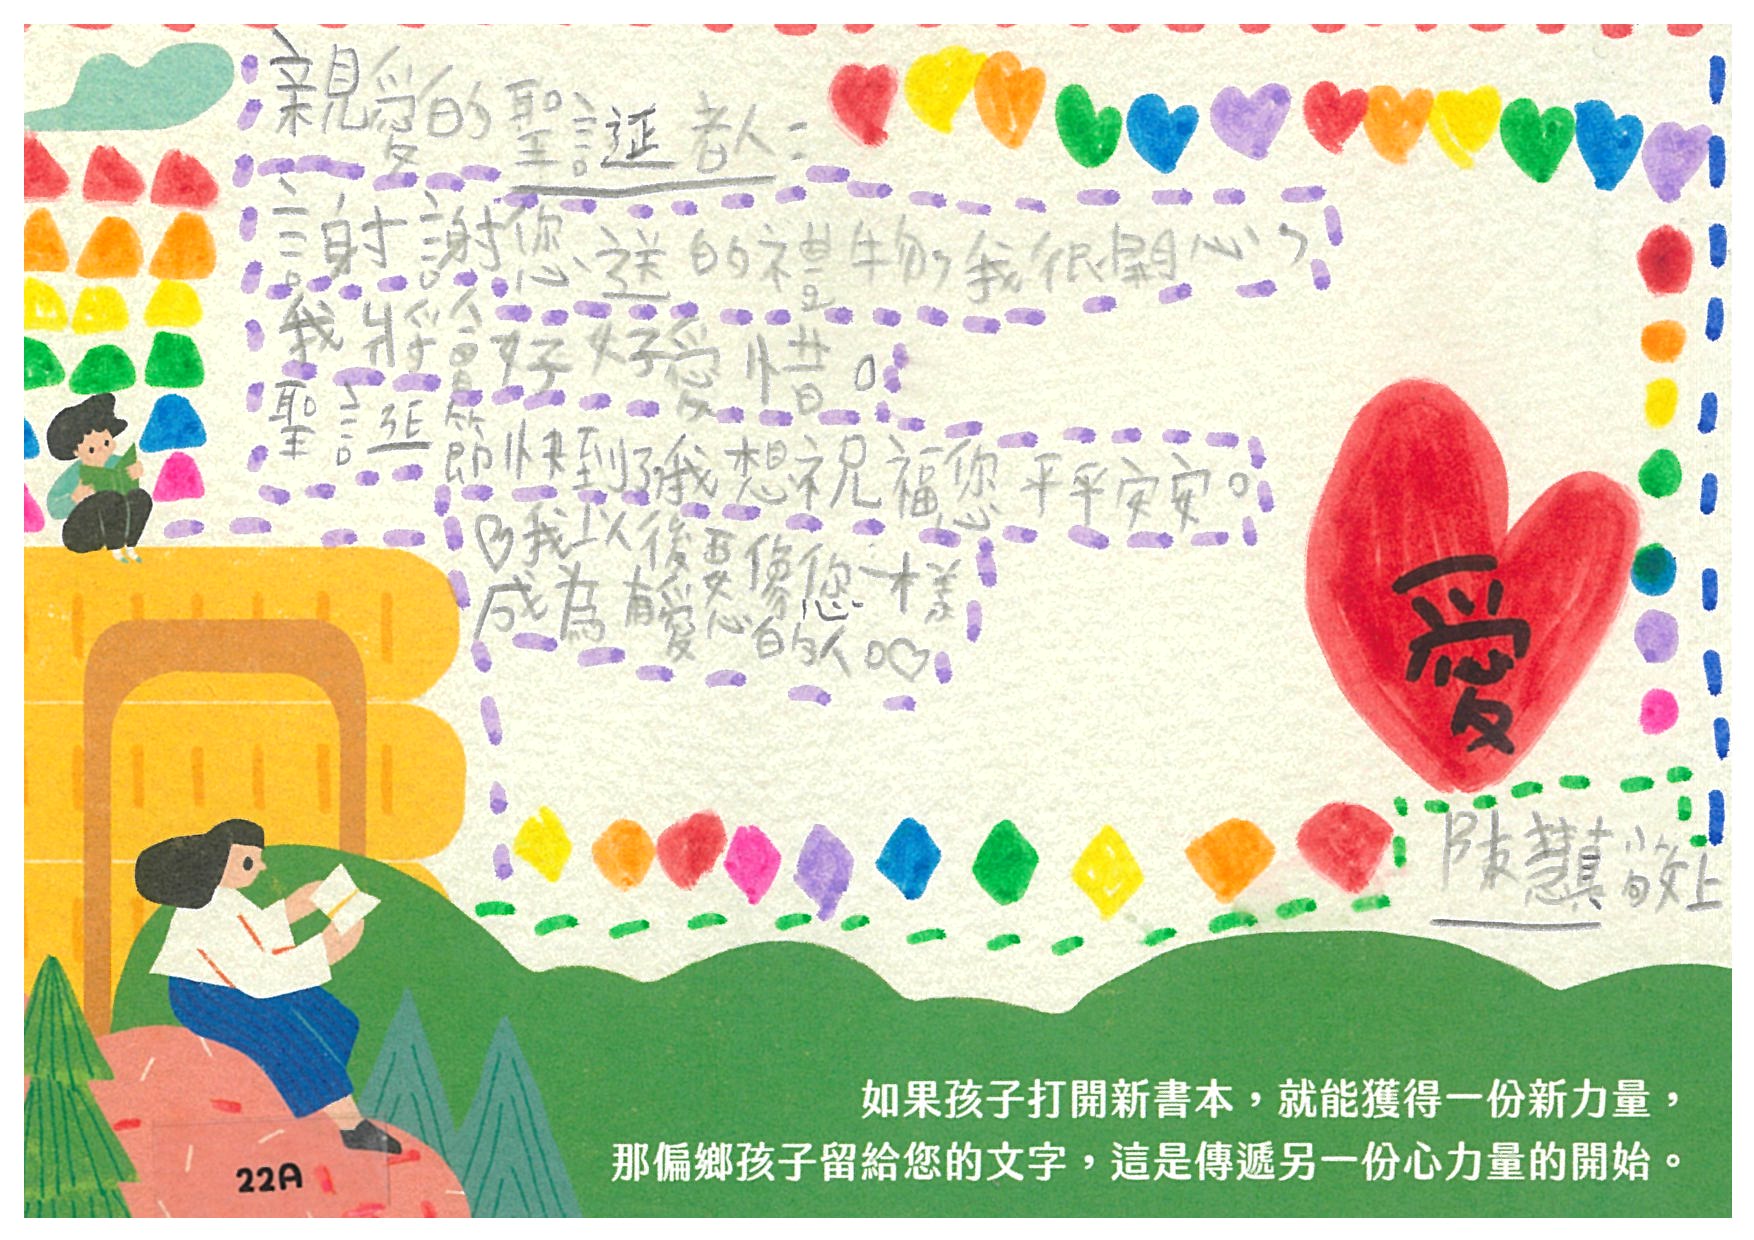 親愛的聖誕老人：
謝謝您送的禮物，我很開心，
我將會好好愛惜。
聖誕節快到了，我想祝福您平平安安。
♡我以後要像您一樣
成為有愛心的人。♡
愛
陳慧真敬上
如果孩子打開新書本，就能獲得一份新力量，
那偏鄉孩子留給您的文字，這是傳遞另一份心力量的開始。
22A